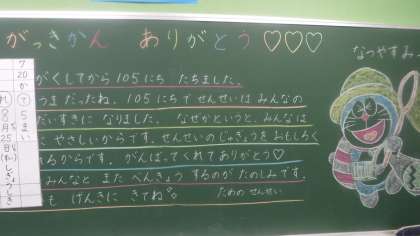 がっきかん ありがとう♡♡♡
なつやすみ
がくしてから105にち たちました。
うまだったね。105にちでせんせいは みんなの
だいすきに なりました。なぜかというと、みんなは
やさしいからです。せんせいのじゅぎょうを おもしろく
るからです。がんばってくれてありがとう♡
みんなと また べんきょう するのが たのしみです。
も げんきに きてね
ための せんせい
7
20
か
で
5
ま
い
8
月
25
日
しぎょうしき